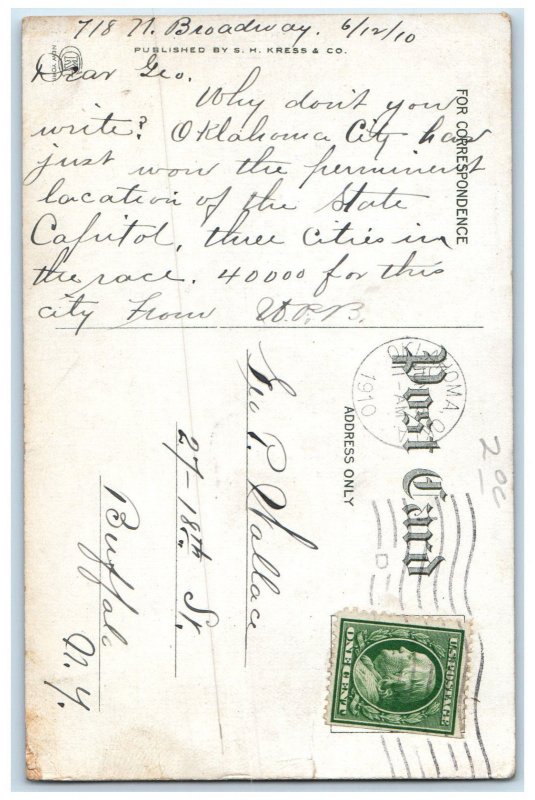 718 N. Broadway. 6/12/10
PUBLISHED BY S. H. KRESS & CO.
NEW YORK
Dear Geo.
Why don't you
write? Oklahoma City has
just won the perminent
location of the State
Capitol, three cities in
the race. 40000 for this
city From W.P.B.
FOR CORRESPONDENCE
Post Card
ADDRESS ONLY
OKLAHOMA
1910
2 00
Geo P. Wallace
27-18th St.
Buffalo
N.Y.
U.S. POSTAGE
ONE CENT